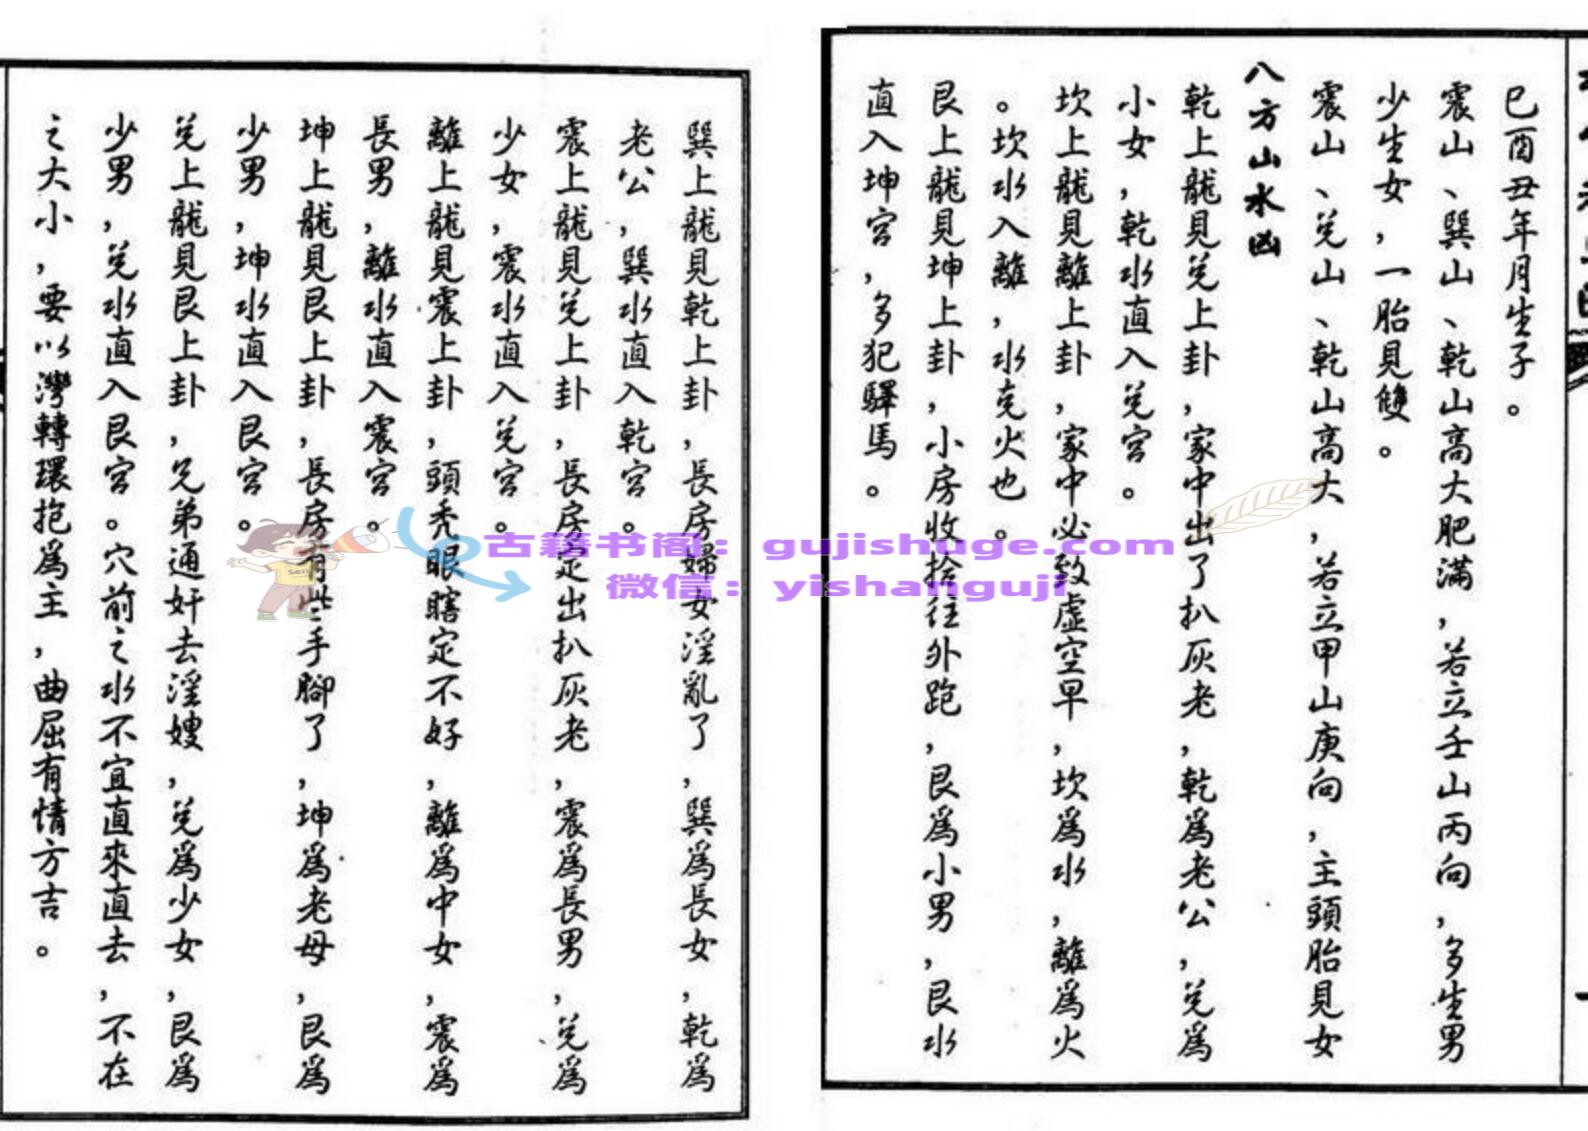 巳酉丑年月生子。
震山、巽山、乾山高大肥滿，若立壬山丙向，多生男
少生女，一胎見雙。
震山、兌山、乾山高大，若立甲山庚向，主頭胎見女
八方山水凶
乾上龍見兌上卦，家中出了扒灰老，乾爲老公，兌爲
小女，乾水直入兌宮。
坎上龍見離上卦，家中必致虛空早，坎爲水，離爲火
。坎水入離，水克火也。
艮上龍見坤上卦，小房收拾往外跑，艮爲小男，艮水
直入坤宮，多犯驛馬。
巽上龍見乾上卦，長房婦女淫亂了，巽爲長女，乾爲
老公，巽水直入乾宮。
震上龍見兌上卦，長房定出扒灰老，震爲長男，兌爲
少女，震水直入兌宮。
離上龍見震上卦，頭禿眼瞎定不好，離爲中女，震爲
長男，離水直入震宮。
坤上龍見艮上卦，長房有些手腳了，坤爲老母，艮爲
少男，坤水直入艮宮。
兌上龍見艮上卦，兄弟通奸去淫嫂，兌爲少女，艮爲
少男，兌水直入艮宮。穴前之水不宜直來直去，不在
之大小，要以灣轉環抱爲主，曲屈有情方吉。
古籍书阁：gujishuge.com
微信：yishanguji